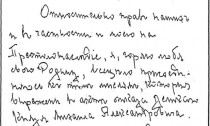 Относительно прав наших
и в частности и моего на
Престолонаследие, я, горячо любя
свою Родину, всецело
к тем мыслям, которые
выражены в акте отказа
Князя Михаила Александровича.